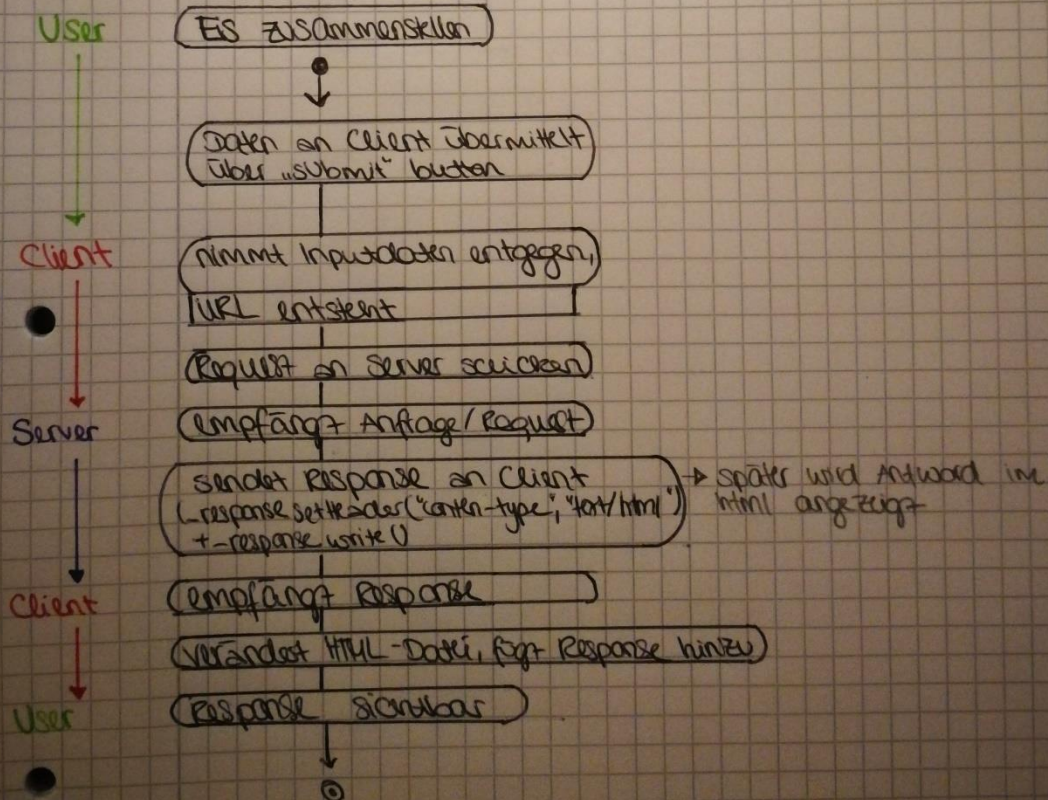 User
Eis zusammenstellen
Daten an Client übermittelt
über „submit" button
Client
nimmt Inputdaten entgegen,
URL entsteht
Request an Server schicken
Server
empfängt Anftage/Request
sendet Response an Client
(_response.setHeader("conten-type", "text/html")
+_response.write()
→ später wird Antword in
html angezeigt
Client
empfängt Response
verändert HTML-Datei, fügt Response hinzu
User
Response sichtbar